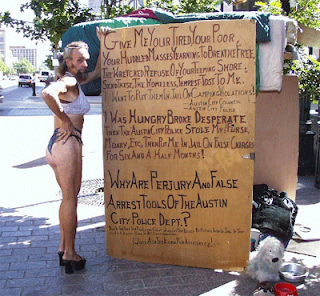 GIVE ME YOUR TIRED, YOUR POOR,
YOUR HUDDLED MASSES YEARNING TO BREATHE FREE,
THE WRETCHED REFUSE OF YOUR TEEMING SHORE;
SEND THESE, THE HOMELESS, TEMPEST TOST TO ME.
I WANT TO PUT THEM IN JAIL ON CAMPING VIOLATIONS!
—AUSTIN CITY COUNCIL
—AUSTIN CITY
POLICE
I WAS HUNGRY BROKE DESPERATE
THEN THE AUSTIN CITY POLICE STOLE MY PURSE,
MONEY, ETC. THEN PUT ME IN JAIL ON FALSE CHARGES
FOR SIX AND A HALF MONTHS!
WHY ARE PERJURY AND FALSE
ARREST TOOLS OF THE AUSTIN
CITY POLICE DEPT.?